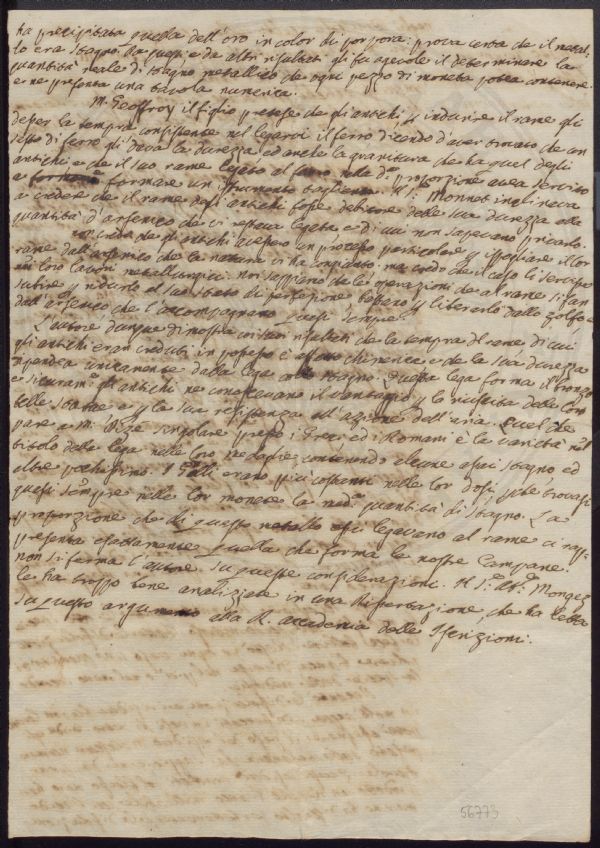 ha precipitata quella dell'oro in color di porpora: prova certa che il metal-
lo era stagno. Da questi e da altri risultati gli fu agevole il determinare la
quantità reale di stagno metallico che ogni pezzo di moneta potea contenere.
e ne presenta una tavola numerica.
M. Geoffroy il figlio pretese che gli antichi p indurire il rame gli
desser la tempra consistente nel legarvi il ferro dicendo d'aver stimato che un
sesto di ferro gli dava la durezza ed anche la granitura che ha quel degli
antichi e che il suo rame legato al ferro nella d.a proporzione avea servito
a formare un istrumento tagliente. Il S.r Monnet inclinava
a credere che il rame degli antichi fosse debitore della sua durezza alla
quantità d'arsenico che vi restava legata e di cui non sapevano privarlo.
non credo che gli antichi avessero un processo particolare p spogliare il lor
rame dall'arsenico che la natura vi ha congiunto: ma credo che il caso li servisse
nei loro lavori metallurgici: noi sappiamo che le operazioni che al rame si fan
subire p ridurlo al suo stato di perfezione bastano p liberarlo dallo zolfo e
dall'arsenico che l'accompagnano quasi sempre.
L'autore dunque dimostra coi suoi risultati che la tempra del rame di cui
gli antichi eran creduti in possesso è affatto chimerica e che la sua durezza
dipendea unicamente dalla lega collo stagno. Questa lega forma il bronzo
e sicuram.e gli antichi ne conoscevano il vantaggio p la riuscita delle loro
belle statue e p la sua resistenza all'azione dell'aria. Quel che
pare a M. Dizé singolare presso i Greci ed i Romani è la varietà nel
titolo della lega nelle loro medaglie contenendo alcune assai stagno ed
altre pochissimo. I Galli erano più costanti nelle lor dosi, poichè trovasi
quasi sempre nelle lor monete la med.a quantità di stagno. La
proporzione che di questo metallo essi legavano al rame ci rapp-
presenta esattamente quella che forma le nostre Campane.
non si ferma l'autore su queste considerazioni. Il S.r Ab.e Mongez
le ha troppo bene analizzate in una Dissertazione, che ha letta
su questo argumento alla R. accademia delle Iscrizioni.
56773